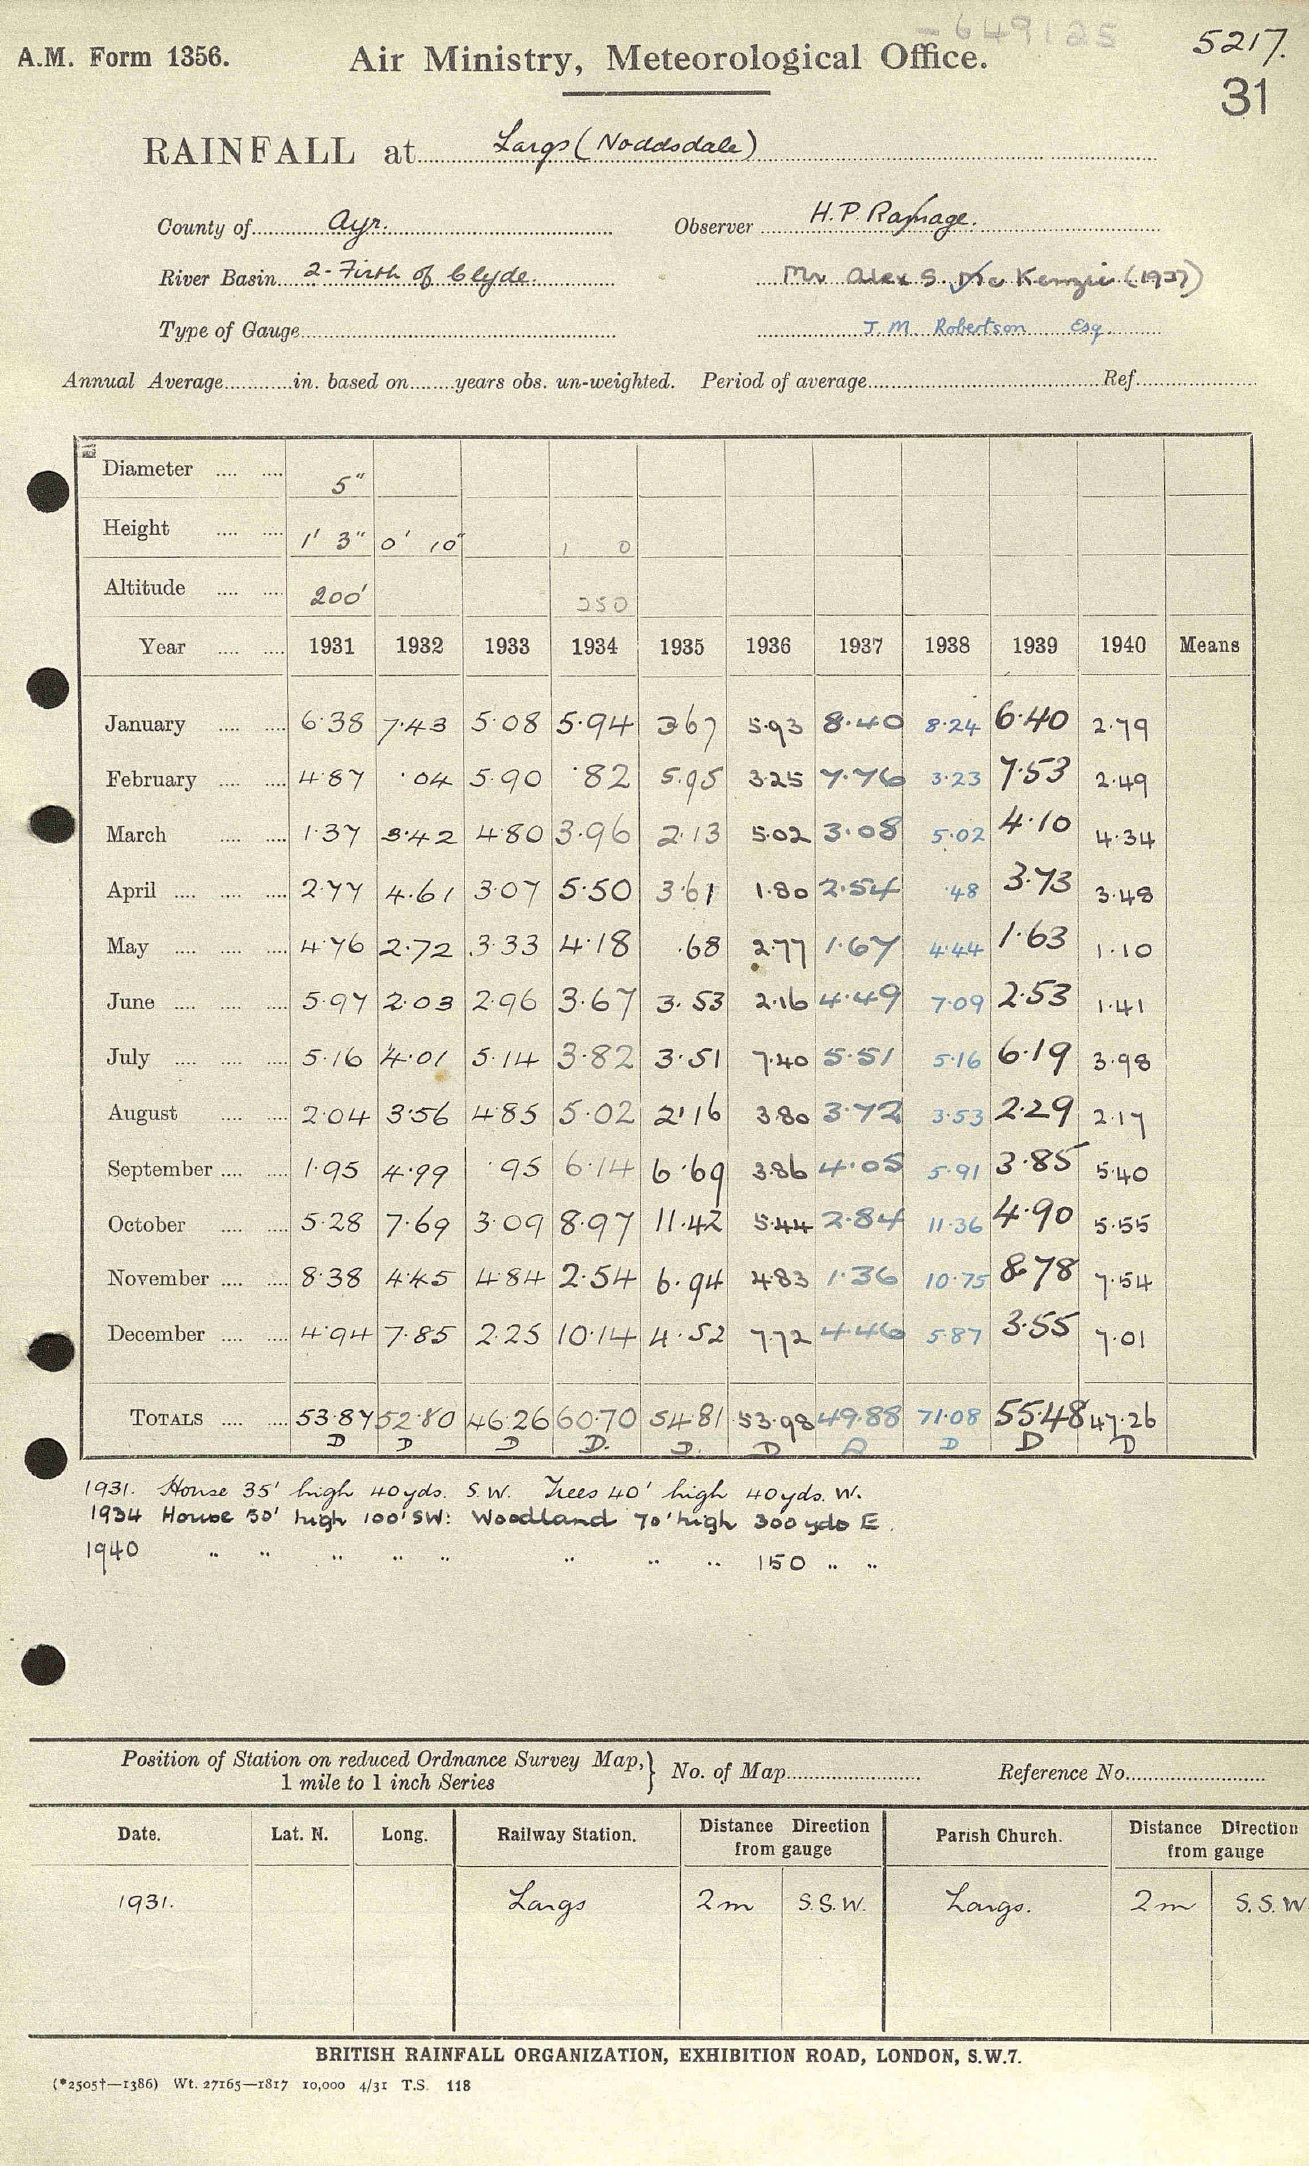 -649125
5217.
A.M. Form 1356. Air Ministry, Meteorological Office.
31
RAINFALL at Largs (Noddsdale)
County of Ayr. Observer H.P. Ramage.
River Basin 2-Firth of Clyde. Mr Alex S. McKenzie (1937)
Type of Gauge J. M. Robertson Esq.
Annual Average in. based on years obs. un-weighted. Period of average Ref.
Diameter 5"
Height 1' 3" 0' 10" 1 0
Altitude 200' 250
Year 1931 1932 1933 1934 1935 1936 1937 1938 1939 1940 Means
January 6.38 7.43 5.08 5.94 3.67 5.93 8.40 8.24 6.40 2.79
February 4.87 .04 5.90 .82 5.95 3.25 7.76 3.23 7.53 2.49
March 1.37 3.42 4.80 3.96 2.13 5.02 3.08 5.02 4.10 4.34
April 2.77 4.61 3.07 5.50 3.61 1.80 2.54 .48 3.73 3.48
May 4.76 2.72 3.33 4.18 .68 2.77 1.67 4.44 1.63 1.10
June 5.97 2.03 2.96 3.67 3.53 2.16 4.49 7.09 2.53 1.41
July 5.16 4.01 5.14 3.82 3.51 7.40 5.51 5.16 6.19 3.98
August 2.04 3.56 4.85 5.02 2.16 3.80 3.72 3.53 2.29 2.17
September 1.95 4.99 .95 6.14 6.69 3.86 4.05 5.91 3.85 5.40
October 5.28 7.69 3.09 8.97 11.42 5.44 2.84 11.36 4.90 5.55
November 8.38 4.45 4.84 2.54 6.94 4.83 1.36 10.75 8.78 7.54
December 4.94 7.85 2.25 10.14 4.52 7.72 4.46 5.87 3.55 7.01
TOTALS 53.87 52.80 46.26 60.70 54.81 53.98 49.88 71.08 55.48 47.26
D D D D. D. D D D D D
1931. House 35' high 40yds. S.W. Trees 40' high 40yds. W.
1934 House 30' high 100' SW: Woodland 70' high 300 yds E.
1940 " " " " " " " " 150 " "
Position of Station on reduced Ordnance Survey Map, } No. of Map Reference No.
1 mile to 1 inch Series
Date. Lat. N. Long. Railway Station. Distance from gauge Direction Parish Church. Distance from gauge Direction
1931. Largs 2m S.S.W. Largs. 2m S.S.W
BRITISH RAINFALL ORGANIZATION, EXHIBITION ROAD, LONDON, S.W.7.
(*2505†—1386) Wt. 27165—1817 10,000 4/31 T.S. 118